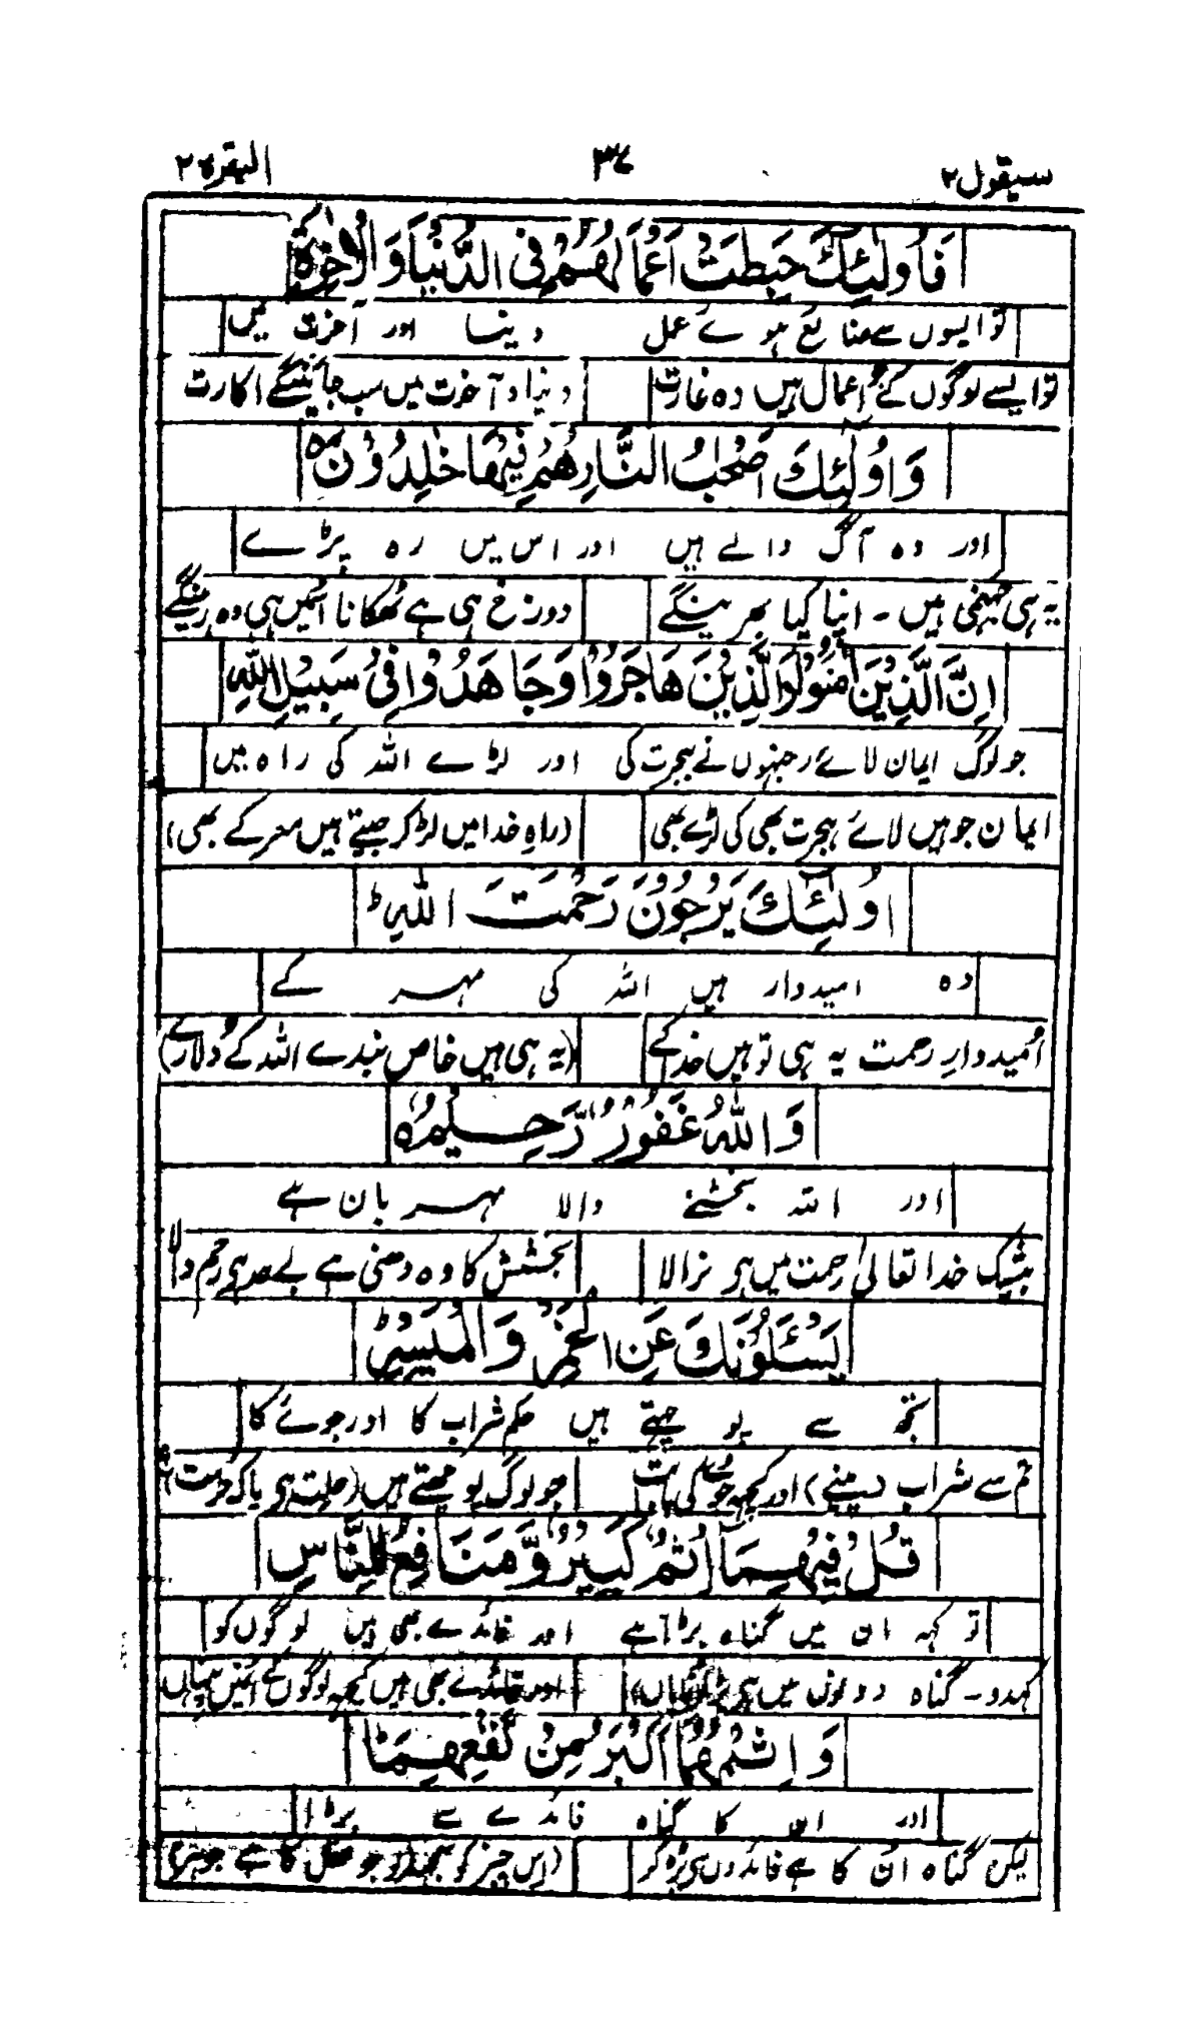 سیقول۲ ۳۷ البقرۃ۲
فَاُولٰٓئِكَ حَبِطَتْ اَعْمَالُهُمْ فِی الدُّنْیَا وَالْاٰخِرَةِ
توایسوں سے ضائع ہوے عمل دینا اور آخرت میں
توایسے لوگوں کے اعمال ہیں وہ غارت دنیا و آخرت میں سب جائینگے اکارت
وَاُولٰٓئِكَ اَصْحٰبُ النَّارِ هُمْ فِیْهَا خٰلِدُوْنَ
اور وہ آگ والے ہیں اور اس میں رہ پڑے
یہ ہی جہنمی ہیں ۔ اپنا کیا بھرینگے دوزخ ہی ہے ٹھکانا اسمیں ہی وہ رہینگے
اِنَّ الَّذِیْنَ اٰمَنُوْا وَالَّذِیْنَ هَاجَرُوْا وَجَاهَدُوْا فِیْ سَبِیْلِ اللّٰهِ
جو لوگ ایمان لائے رجنہوں نے ہجرت کی اور لڑے اللہ کی راہ میں
ایمان جو ہیں لائے ہجرت بھی کی لڑے بھی (راہِ خدا میں لڑ کر جیتے ہیں معرکے بھی)
اُولٰٓئِكَ یَرْجُوْنَ رَحْمَتَ اللّٰهِ ط
وہ امیدوار ہیں اللہ کی مہر کے
اُمیدوارِ رحمت یہ ہی تو ہیں خدا کے (یہ ہی ہیں خاص بندے اللہ کے دُلارے)
وَاللّٰهُ غَفُوْرٌ رَّحِیْمٌ
اور اللہ بخشنے والا مہربان ہے
بیشک خدا تعالیٰ رحمت میں ہی نرالا بخشش کا وہ دھنی ہے بے حد ہی رحم والا
یَسْئَلُوْنَكَ عَنِ الْخَمْرِ وَالْمَیْسِرِ ط
تجھ سے پوچھتے ہیں حکم شراب کا اور جوئے کا
تم سے شراب (پینے) اور کچھ جوئے کی بابت جو لوگ پوچھتے ہیں (حلت ہی یا کہ حرمت)
قُلْ فِیْهِمَا اِثْمٌ كَبِیْرٌ وَّمَنَافِعُ لِلنَّاسِ
تو کہہ ان میں گناہ بڑا ہے اور فائدے بھی ہیں لوگوں کو
کہدو ۔ گناہ دونوں میں ہی اور فائدے بھی ہیں کچھ لوگوں کے
وَاِثْمُهُمَا اَكْبَرُ مِنْ نَّفْعِهِمَا ط
اور ان کا گناہ فائدے سے بڑا
لیکن گناہ اُن کا ہے فائدوں سے بڑہ کر (اِس چیز کو سمجھ لو جو عقل کا ہے جوہر)